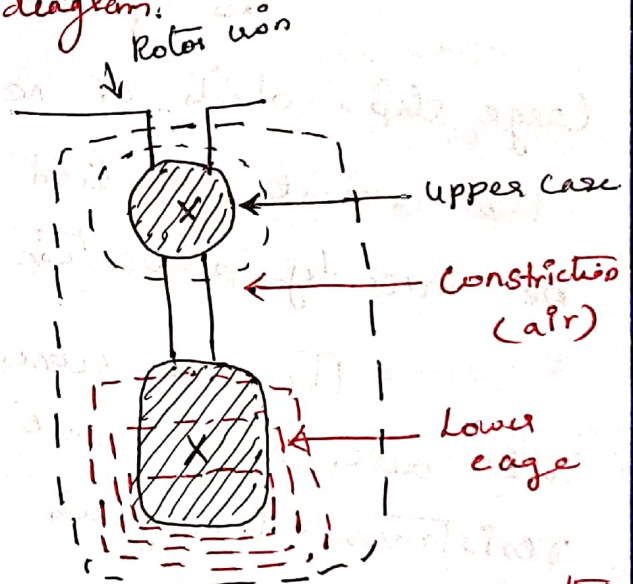 diagram.
Rotor iron
upper case
Constriction
(air)
Lower
cage